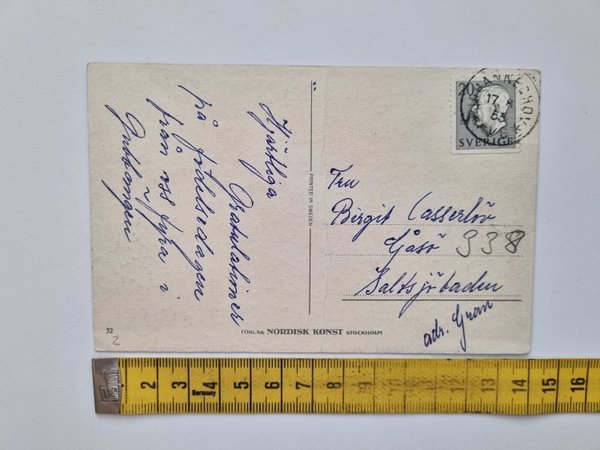 Hjärtliga
Gratulationer
på födelsedagen
från oss fyra i
20
SVERIGE
17
53
PRINTED IN SWEDEN
Fru
Birgit Casserlöv
Gåsö 938
Saltsjöbaden
adr. Gran
32
2
FÖRLAG NORDISK KONST STOCKHOLM
2 3 4 5 6 7 8 9 10 11 12 13 14 15 16
Germany